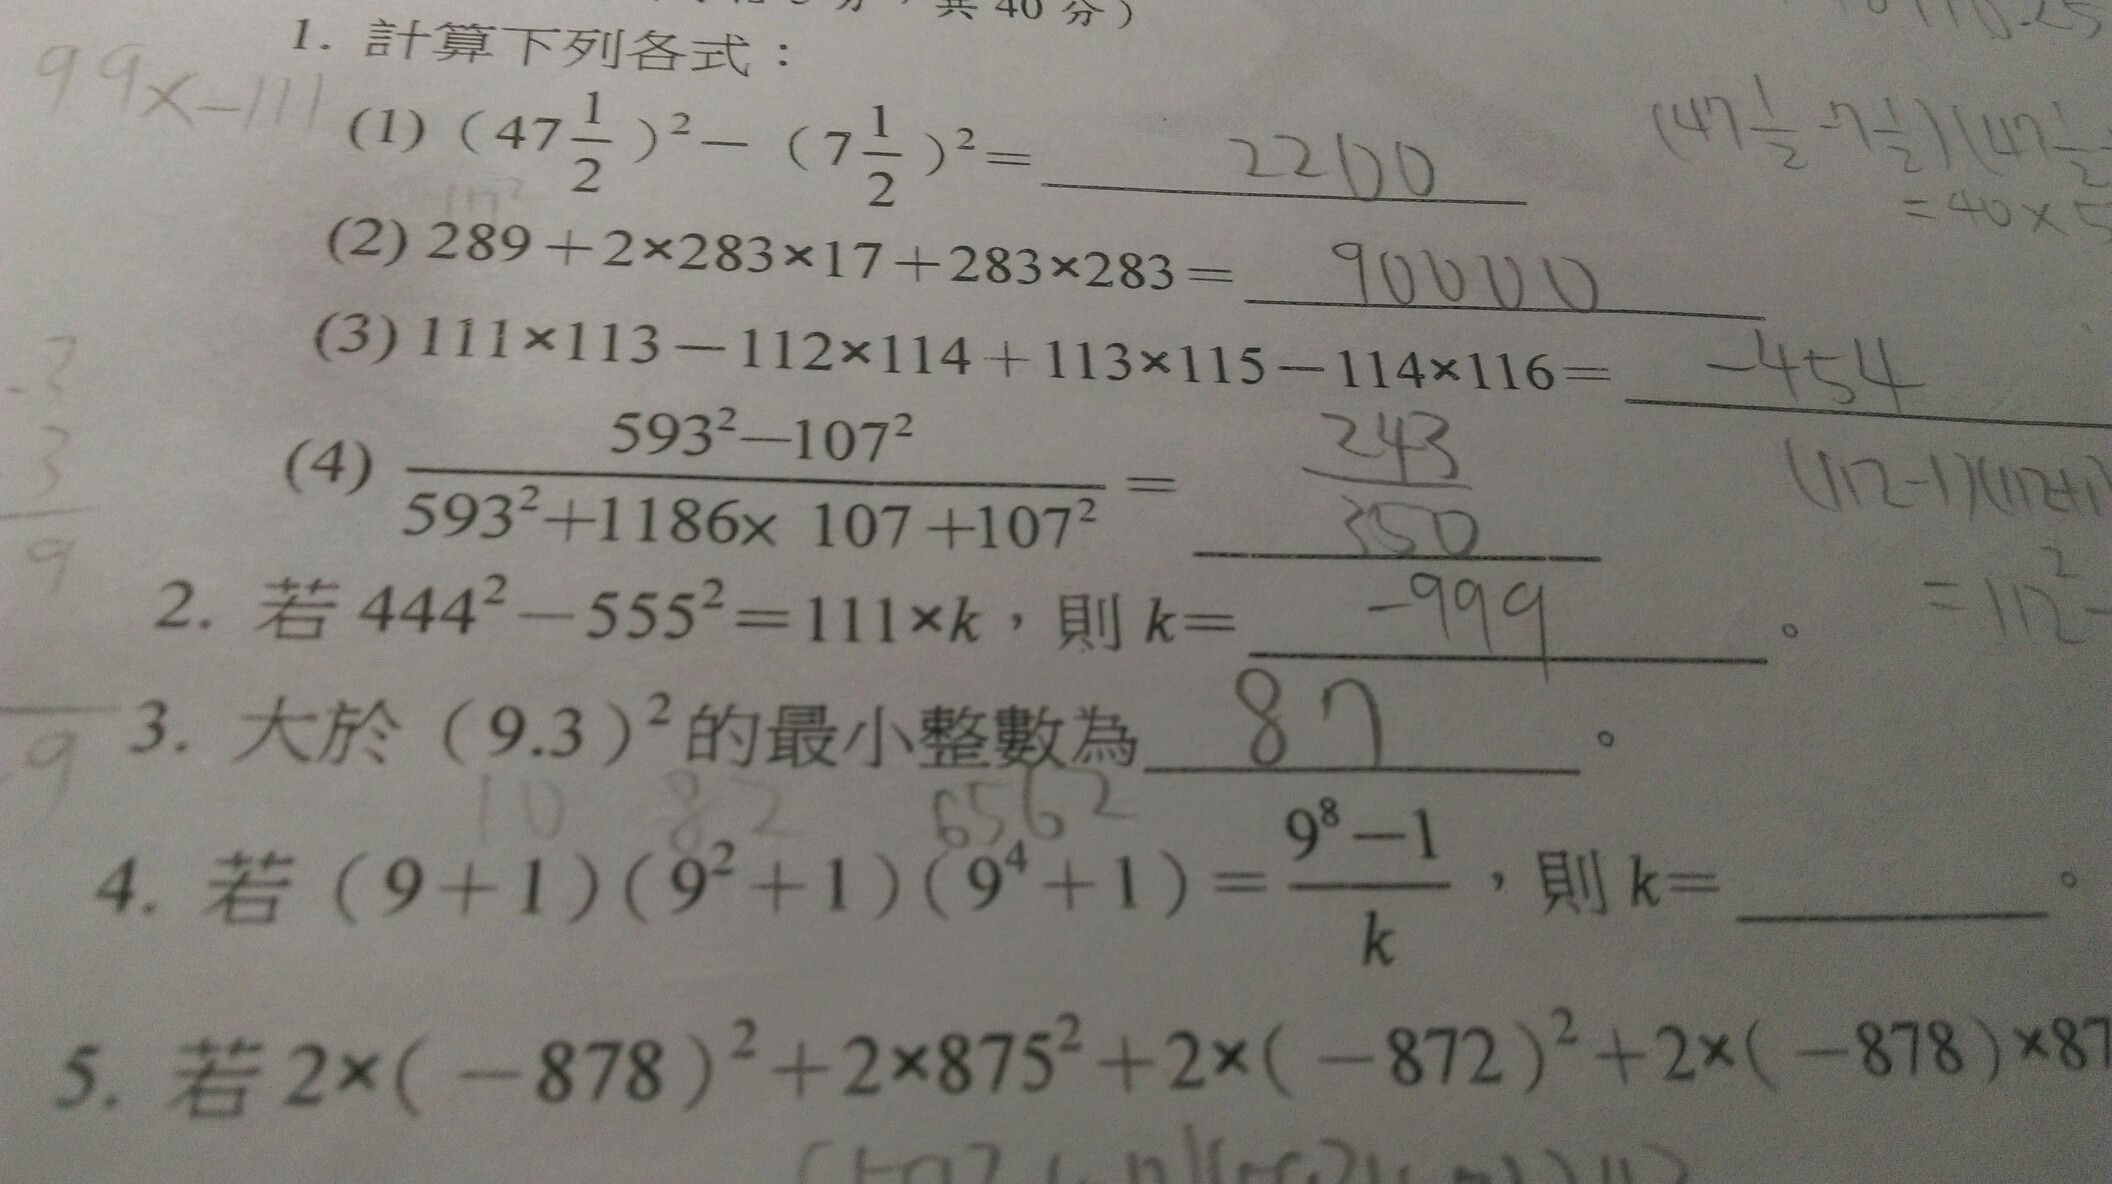 共 40 分）
1. 計算下列各式：
99×-111
(1)（47 1/2）²－（7 1/2）²＝ 2200
(47 1/2 -7 1/2)(47 1/2
=40×5
(2) 289＋2×283×17＋283×283＝ 90000
(3) 111×113－112×114＋113×115－114×116＝ -454
(4) 593²－107² / 593²＋1186× 107＋107² ＝ 243/350
(112-1)(112+1)
=112²-
3
3
9
2. 若 444²－555²＝111×k，則 k＝ -999 。
3. 大於（9.3）²的最小整數為 87 。
9
10 82 6562
4. 若（9＋1）（9²＋1）（9⁴＋1）＝ 9⁸－1 / k ，則 k＝ 。
5. 若 2×（－878）²＋2×875²＋2×（－872）²＋2×（－878）×87